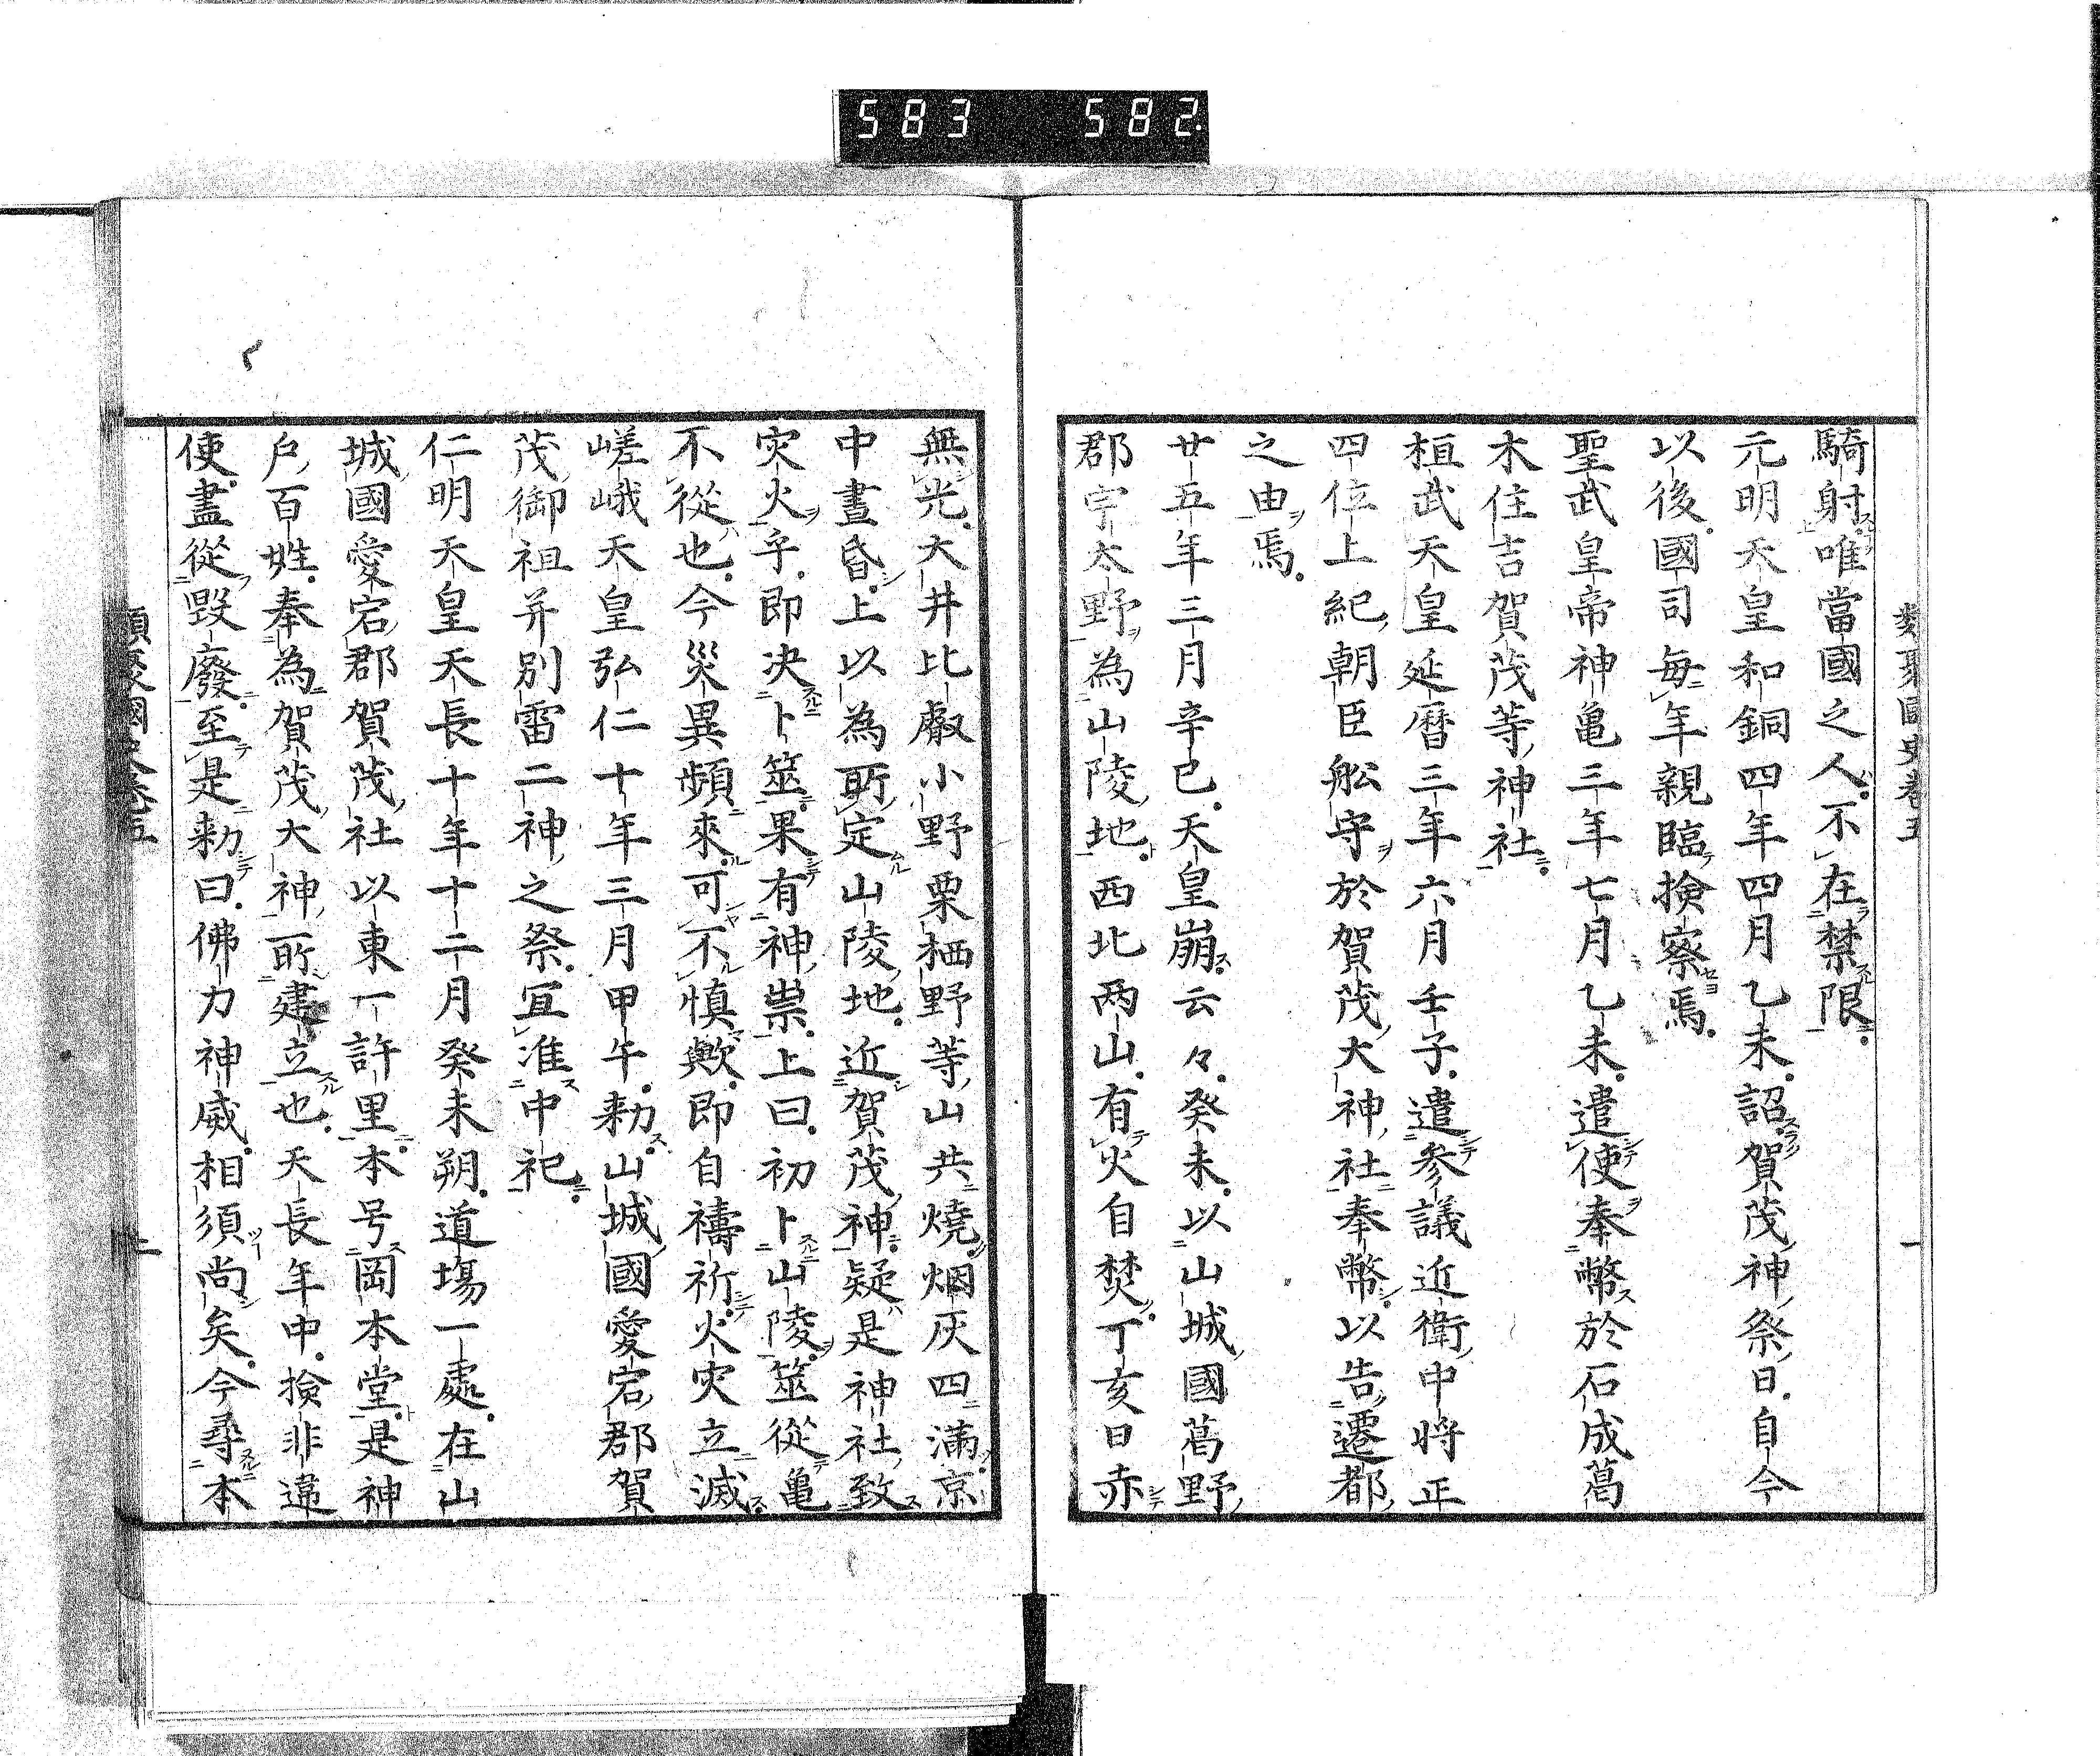 583 582
類聚國史卷五 一
騎射唯當國之人不在禁限
元明天皇和銅四年四月乙未詔賀茂神祭日自今
以後國司毎年親臨撿察焉
聖武皇帝神亀三年七月乙未遣使奉幣於石成葛
木住吉賀茂等神社
桓武天皇延暦三年六月壬子遣参議近衛中將正
四位上紀朝臣舩守於賀茂大神社奉幣以告遷都
之由焉
廿五年三月辛巳天皇崩云々癸未以山城國葛野
郡宇太野為山陵地西北两山有火自焚丁亥日赤
無光大井比叡小野栗栖野等山共燒烟灰四滿京
中晝昏上以為所定山陵地近賀茂神疑是神社致
灾火乎即决卜筮果有神祟上曰初卜山陵筮從亀
不從也今災異頻來可不慎歟即自禱祈火灾立滅
嵯峨天皇弘仁十年三月甲午勅山城國愛宕郡賀
茂御祖并別雷二神之祭冝准中祀
仁明天皇天長十年十二月癸未朔道場一處在山
城國愛宕郡賀茂社以東一許里本号岡本堂是神
戸百姓奉為賀茂大神所建立也天長年中撿非違
使盡從毀廢至是勅曰佛力神威相須尚矣今尋本
類聚國史卷五 二